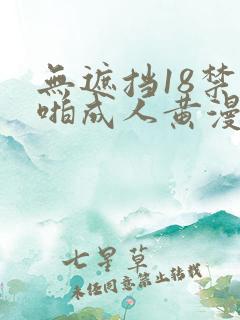 無遮挡18禁
啪成人黄漫
七星草
未经同意禁止转载